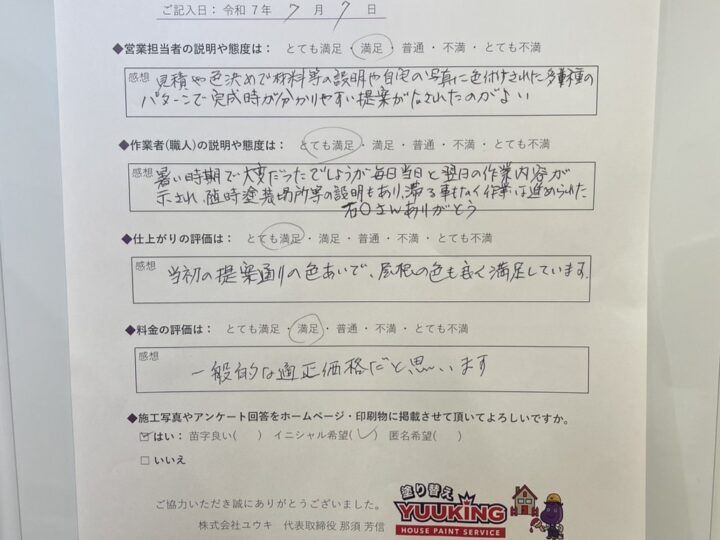 ご記入日：令和7年 7 月 7 日
◆営業担当者の説明や態度は： とても満足・満足・普通・不満・とても不満
感想 見積や色決めで材料等の説明や自宅の写真に色付けされた多種の
パターンで完成時が分かりやすい提案がなされたのがよい
◆作業者(職人)の説明や態度は： とても満足・満足・普通・不満・とても不満
感想 暑い時期で大変だったでしょうが毎日当日と翌日の作業内容が
示され、随時塗装場所等の説明もあり、滞る事もなく作業は進められた
右〇さんありがとう
◆仕上がりの評価は： とても満足・満足・普通・不満・とても不満
感想 当初の提案通りの色あいで、屋根の色も良く満足しています。
◆料金の評価は： とても満足・満足・普通・不満・とても不満
感想 一般的な適正価格だと思います
◆施工写真やアンケート回答をホームページ・印刷物に掲載させて頂いてよろしいですか。
☑はい： 苗字良い( ) イニシャル希望(✓) 匿名希望( )
□いいえ
ご協力いただき誠にありがとうございました。
株式会社ユウキ 代表取締役 那須 芳信
塗り替え
YUUKING
HOUSE PAINT SERVICE